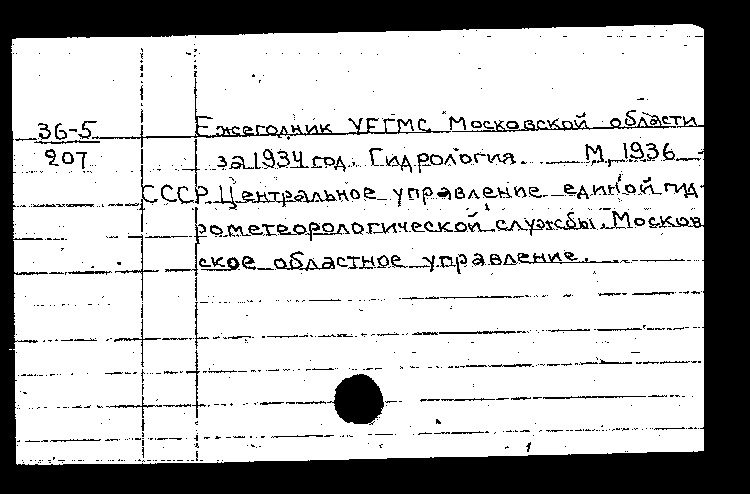 36-5 Ежегодник УЕГМС Московской области
207 за 1934 год. Гидрология. М, 1936
СССР. Центральное управление единой гид-
рометеорологической службы. Москов
ское областное управление.